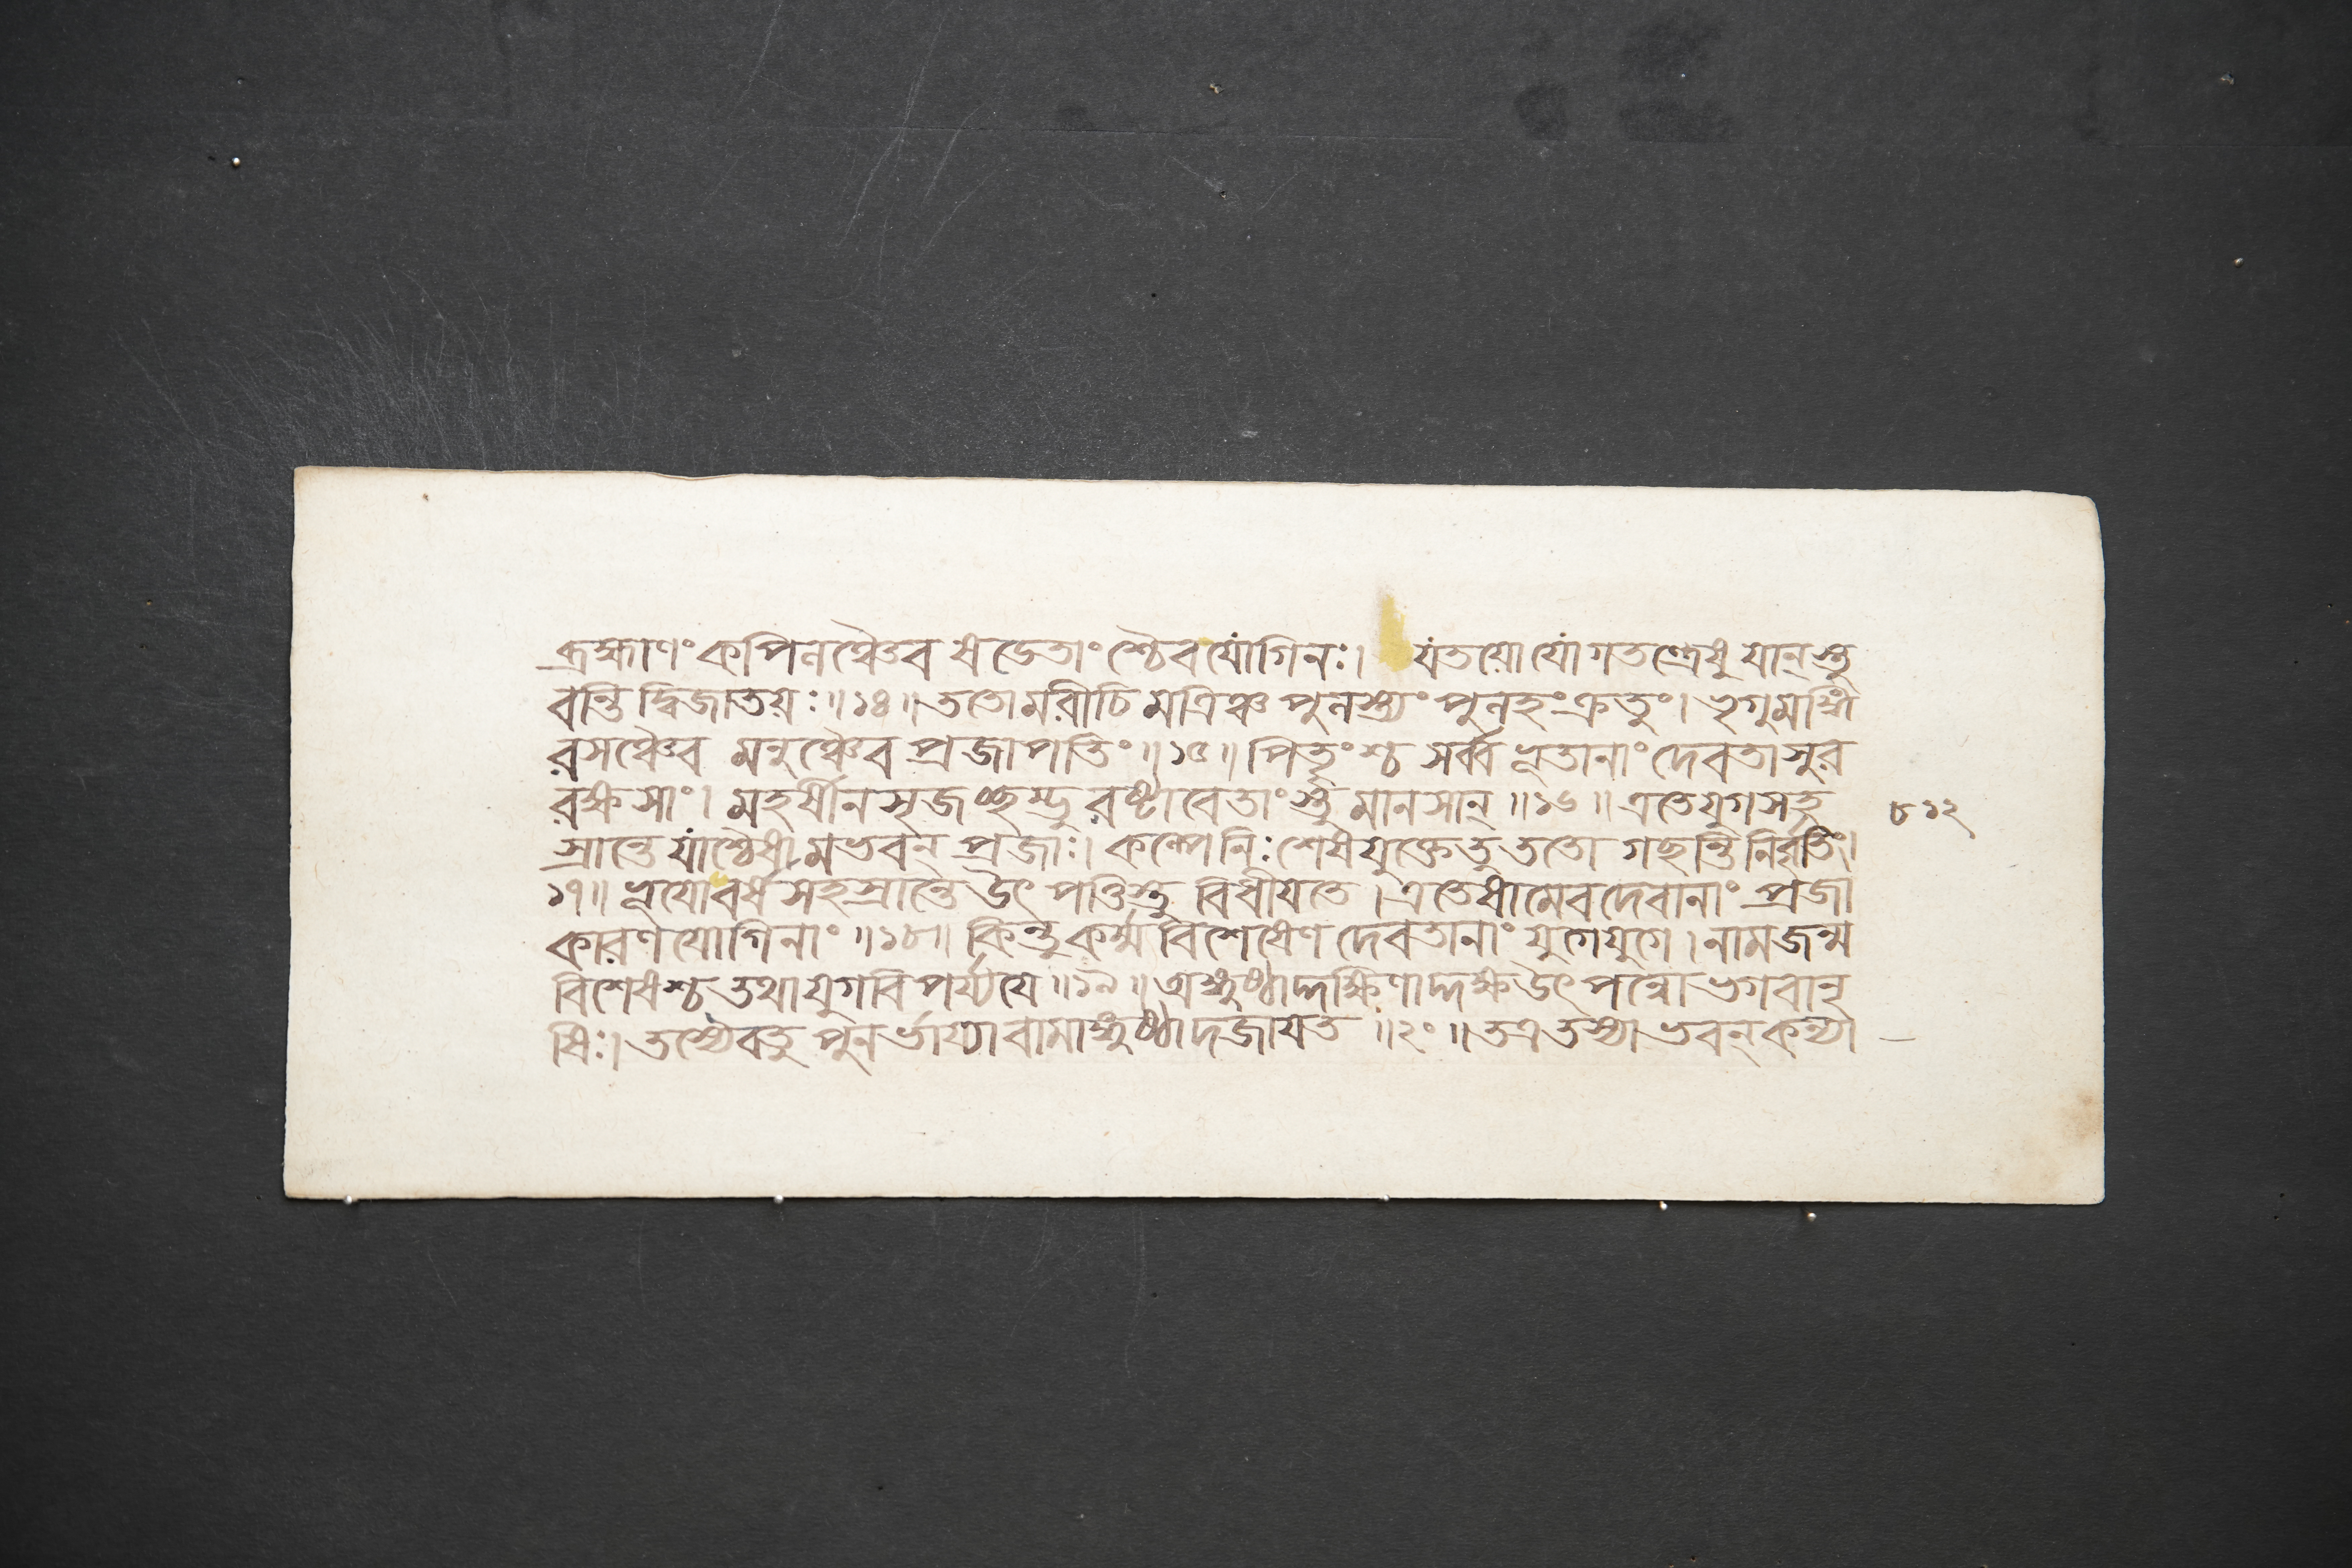 ব্রহ্মাণং কপিলঞ্চৈব ষডেতাংশ্চৈব যোগিনঃ। যতয়ো যোগতন্ত্রেষু যান্ স্তু
বন্তি দ্বিজাতয়ঃ॥১৪॥ ততো মরীচিমত্রিঞ্চ পুলস্ত্যং পুলহং ক্রতুং। ভৃগুমঙ্গি
রসঞ্চৈব মনুঞ্চৈব প্রজাপতিং॥১৫॥ পিতৄংশ্চ সর্ব্বভূতানাং দেবতাসুর
রক্ষসাং। মহর্ষীনসৃজৎ শম্ভুরষ্টাবেতাংস্তু মানসান্॥১৬॥ এতে যুগসহ
স্রান্তে যাশ্চৈষামভবন্ প্রজাঃ। কল্পে নিঃশেষযুক্তে তু ততো গছন্তি নির্বৃতিং।
১৭॥ ভূযো বর্ষসহস্রান্তে উৎপত্তিস্তু বিধীযতে। এতেষামেব দেবানাং প্রজা
কারণযোগিনাং॥১৮॥ কিন্তু কর্ম্মবিশেষেণ দেবতানাং যুগে যুগে। নামজন্ম
বিশেষশ্চ তথা যুগবিপর্য্যযে॥১৯॥ অঙ্গুষ্ঠাদ্দক্ষিণাদ্দক্ষ উৎপন্নো ভগবানৃ
ষিঃ। তস্যৈব তু পুনর্ভার্য্যা বামাঙ্গুষ্ঠাদজাযত॥২০॥ তত্র তস্যাভবন্ কন্যা
৮১২